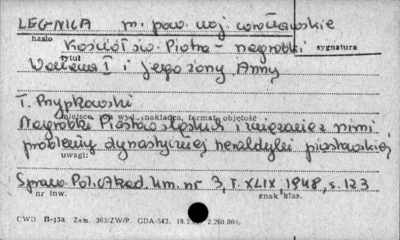 LEGNICA m. pow. woj. wrocławskie
hasło
Kościół św. Piotra - nagrobki sygnatura
tytuł
Wacława I i jego żony Anny
T. Przypkowski
miejsce, wyd. nakładca, format, objętość
Nagrobki Piastów śląskich i związane z nimi
problemy dynastycznej heraldyki piastowskiej
uwagi:
Spraw. Pol. Akad. Um. nr 3, T. XLIX, 1948, s. 123
nr inw. znak klas.
CWD. B-15a Zam. 363/ZW/P. GDA-543. 2.260.000.